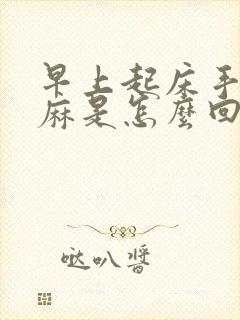 早上起床手
麻是怎麼回
哒叭醬